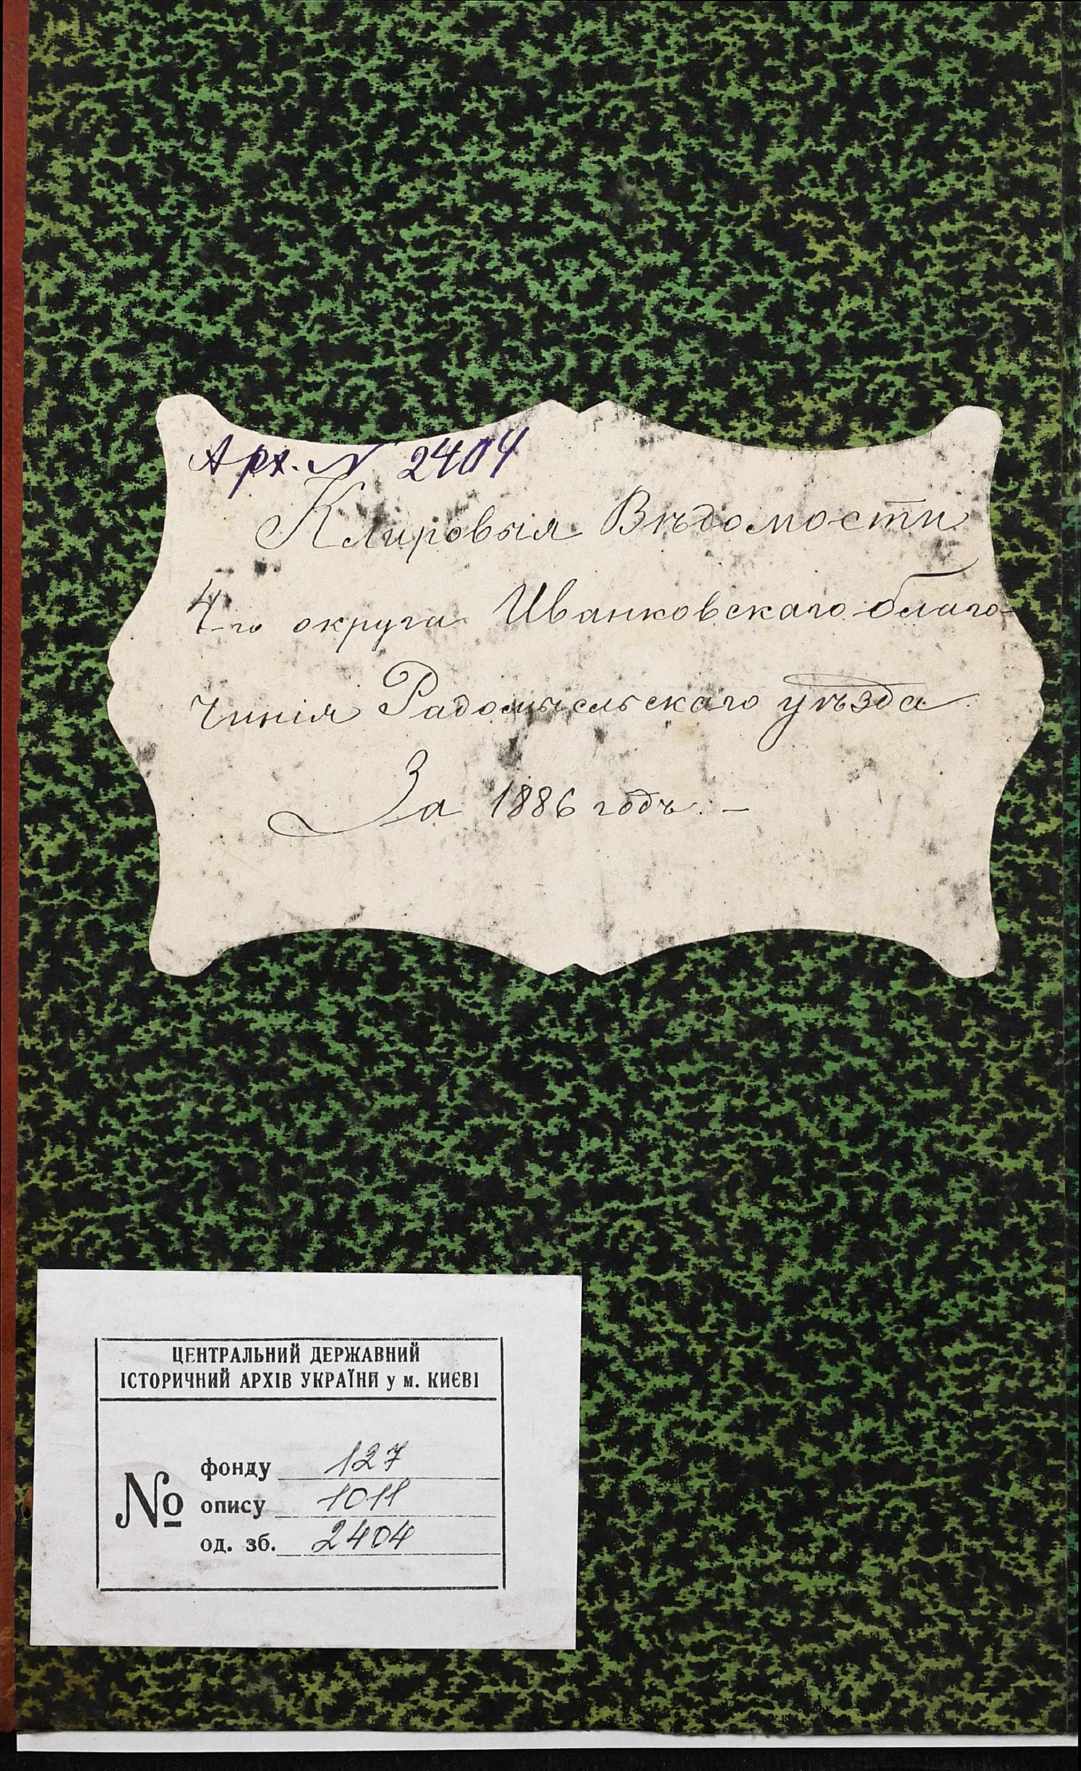 Арх. № 2404
Клировыя Вѣдомости
4-го округа Иванковскаго благо-
чинія Радомысльскаго уѣзда
За 1886 годъ. –
ЦЕНТРАЛЬНИЙ ДЕРЖАВНИЙ
ІСТОРИЧНИЙ АРХІВ УКРАЇНИ у м. КИЄВІ
№
фонду 127
опису 1011
од. зб. 2404